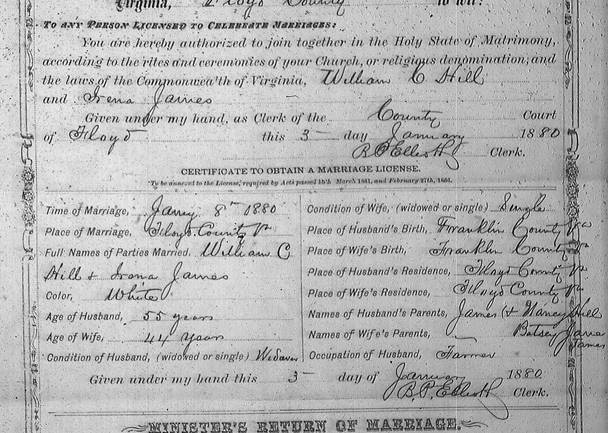 Virginia, Floyd County to wit:
TO ANY PERSON LICENSED TO CELEBRATE MARRIAGES:
You are hereby authorized to join together in the Holy State of Matrimony,
according to the rites and ceremonies of your Church, or religious denomination, and
the laws of the Commonwealth of Virginia, William C Hill
and Irena James
Given under my hand, as Clerk of the County Court
of Floyd this 3 day January 1880
B. P. Elliott Clerk.
CERTIFICATE TO OBTAIN A MARRIAGE LICENSE.
To be annexed to the License, required by Acts passed 15th March 1861, and February 27th, 1866.
Time of Marriage, Jany 8th 1880
Place of Marriage, Floyd County Va
Full Names of Parties Married, William C
Hill & Irena James
Color, White
Age of Husband, 55 years
Age of Wife, 44 years
Condition of Husband, (widowed or single)
Condition of Wife, (widowed or single) Single
Place of Husband's Birth, Franklin County Va
Place of Wife's Birth, Franklin County Va
Place of Husband's Residence, Floyd County Va
Place of Wife's Residence, Floyd County Va
Names of Husband's Parents, James & Nancy Hill
Names of Wife's Parents, Betsey James
James
Occupation of Husband, Farmer
Given under my hand this 3 day of January 1880
B. P. Elliott Clerk.
MINISTER'S RETURN OF MARRIAGE.